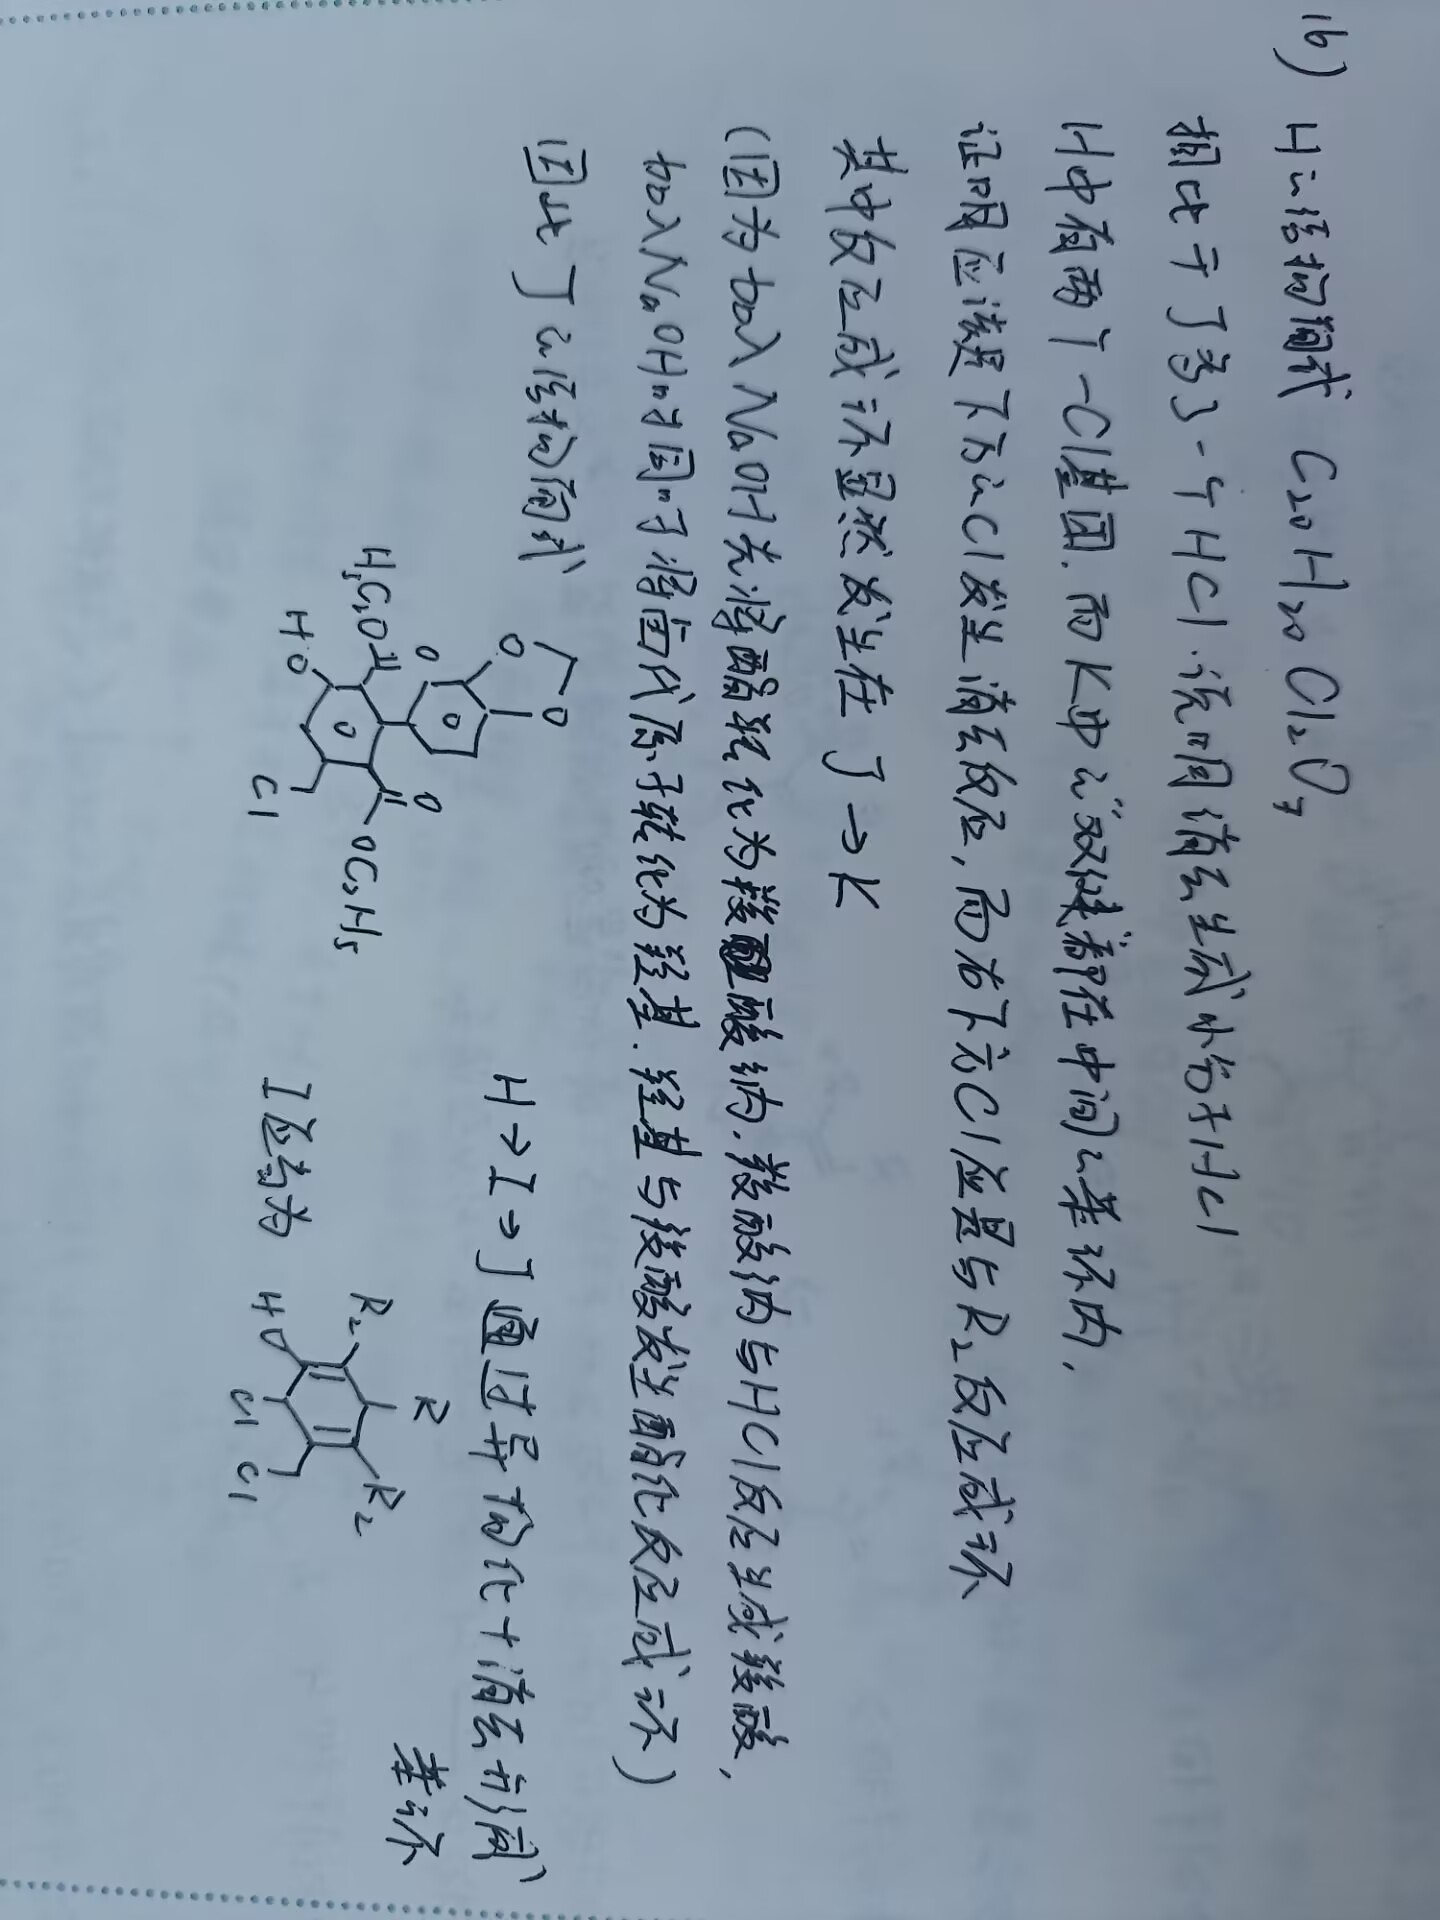 (b) H的结构简式 C₂₀H₂₀Cl₂O₇
相比于J多了一个HCl.说明消去生成小分子HCl
H中有两个-Cl基团.而K中的"双键"都在中间的苯环内,
证明应该是下方的Cl发生消去反应,而右下方Cl应是与R₂反应成环
其中反应成环显然发生在J→K
(因为加入NaOH先将酯转化为羧酸钠.羧酸钠与HCl反应生成羧酸,
加入NaOH的同时将卤代原子转化为羟基.羟基与羧酸发生酯化反应成环)
因此J的结构简式
H→I→J通过异构化+消去中间苯环
O
O
H₅C₂O
O
HO
O
OC₂H₅
Cl
I应当为
R
R₂
R₂
HO
Cl
Cl